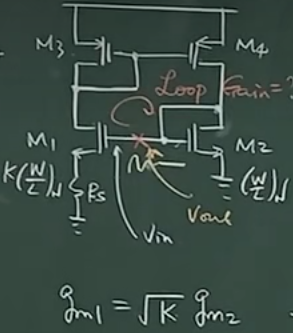 M3
M4
Loop Gain = ?
M1
M2
K(W/L)N
Rs
(W/L)N
Vout
Vin
gm1 = √K gm2